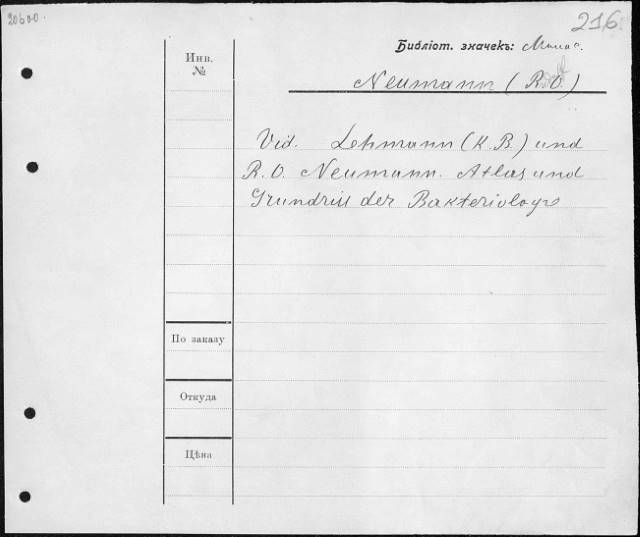 20600.
216.
Библіот. значекъ:
Инв.
№
Neumann (R. O.)
Vid. Lehmann (K. B.) und
R. O. Neumann. Atlas und
Grundriss der Bakteriologie
По заказу
Откуда
Цѣна